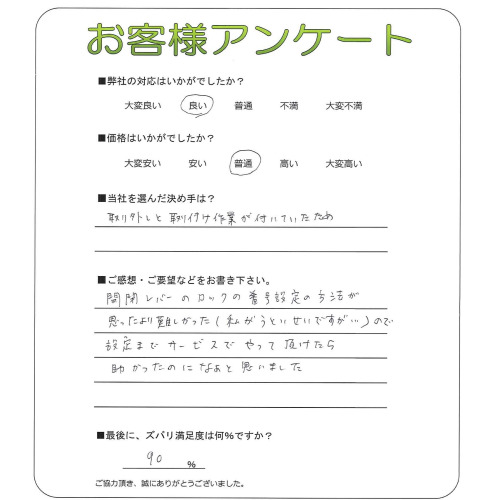 お客様アンケート
■弊社の対応はいかがでしたか？
大変良い 良い 普通 不満 大変不満
■価格はいかがでしたか？
大変安い 安い 普通 高い 大変高い
■当社を選んだ決め手は？
取り外しと取付け作業が付いていたため
■ご感想・ご要望などをお書き下さい。
開閉レバーのロックの番号設定の方法が
思ったより難しかった(私がうといせいですが…)ので
設定までサービスでやって頂けたら
助かったのになぁと思いました
■最後に、ズバリ満足度は何％ですか？
90 ％
ご協力頂き、誠にありがとうございました。